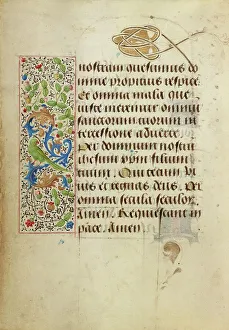 nostram quesumus do
mine propitius respice
Et omnia mala que
iuste meremur omnium
sanctorum tuorum in
tercessione aduerte
Per dominum nostrum
ihesum xpristum filium
tuum Qui tecum
uiuit et regnat deus Per
omnia secula seculorum
Amen Requiescant in
pace Amen